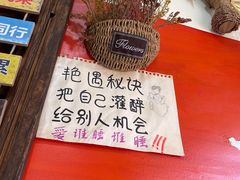 Flowers
同行
艳遇秘诀
把自己灌醉
给别人机会
爱谁睡谁睡!!!